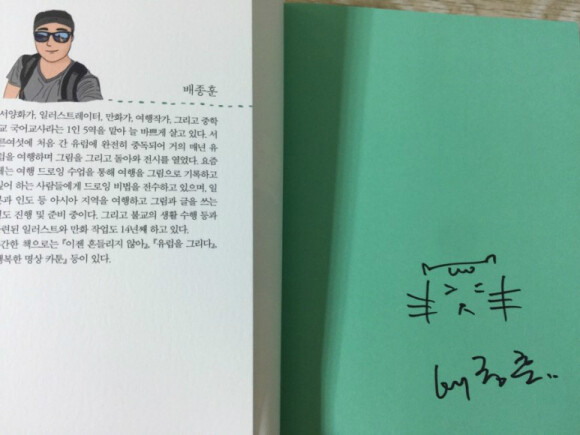 배종훈
서양화가, 일러스트레이터, 만화가, 여행작가, 그리고 중학
교 국어교사라는 1인 5역을 맡아 늘 바쁘게 살고 있다. 서
른여섯에 처음 간 유럽에 완전히 중독되어 거의 매년 유
럽을 여행하며 그림을 그리고 돌아와 전시를 열었다. 요즘
에는 여행 드로잉 수업을 통해 여행을 그림으로 기록하고
싶어 하는 사람들에게 드로잉 비법을 전수하고 있으며, 일
본과 인도 등 아시아 지역을 여행하고 그림과 글을 쓰는
업도 진행 및 준비 중이다. 그리고 불교의 생활 수행 등과
관련된 일러스트와 만화 작업도 14년째 하고 있다.
간한 책으로는 『이젠 흔들리지 않아』, 『유럽을 그리다』,
행복한 명상 카툰』 등이 있다.